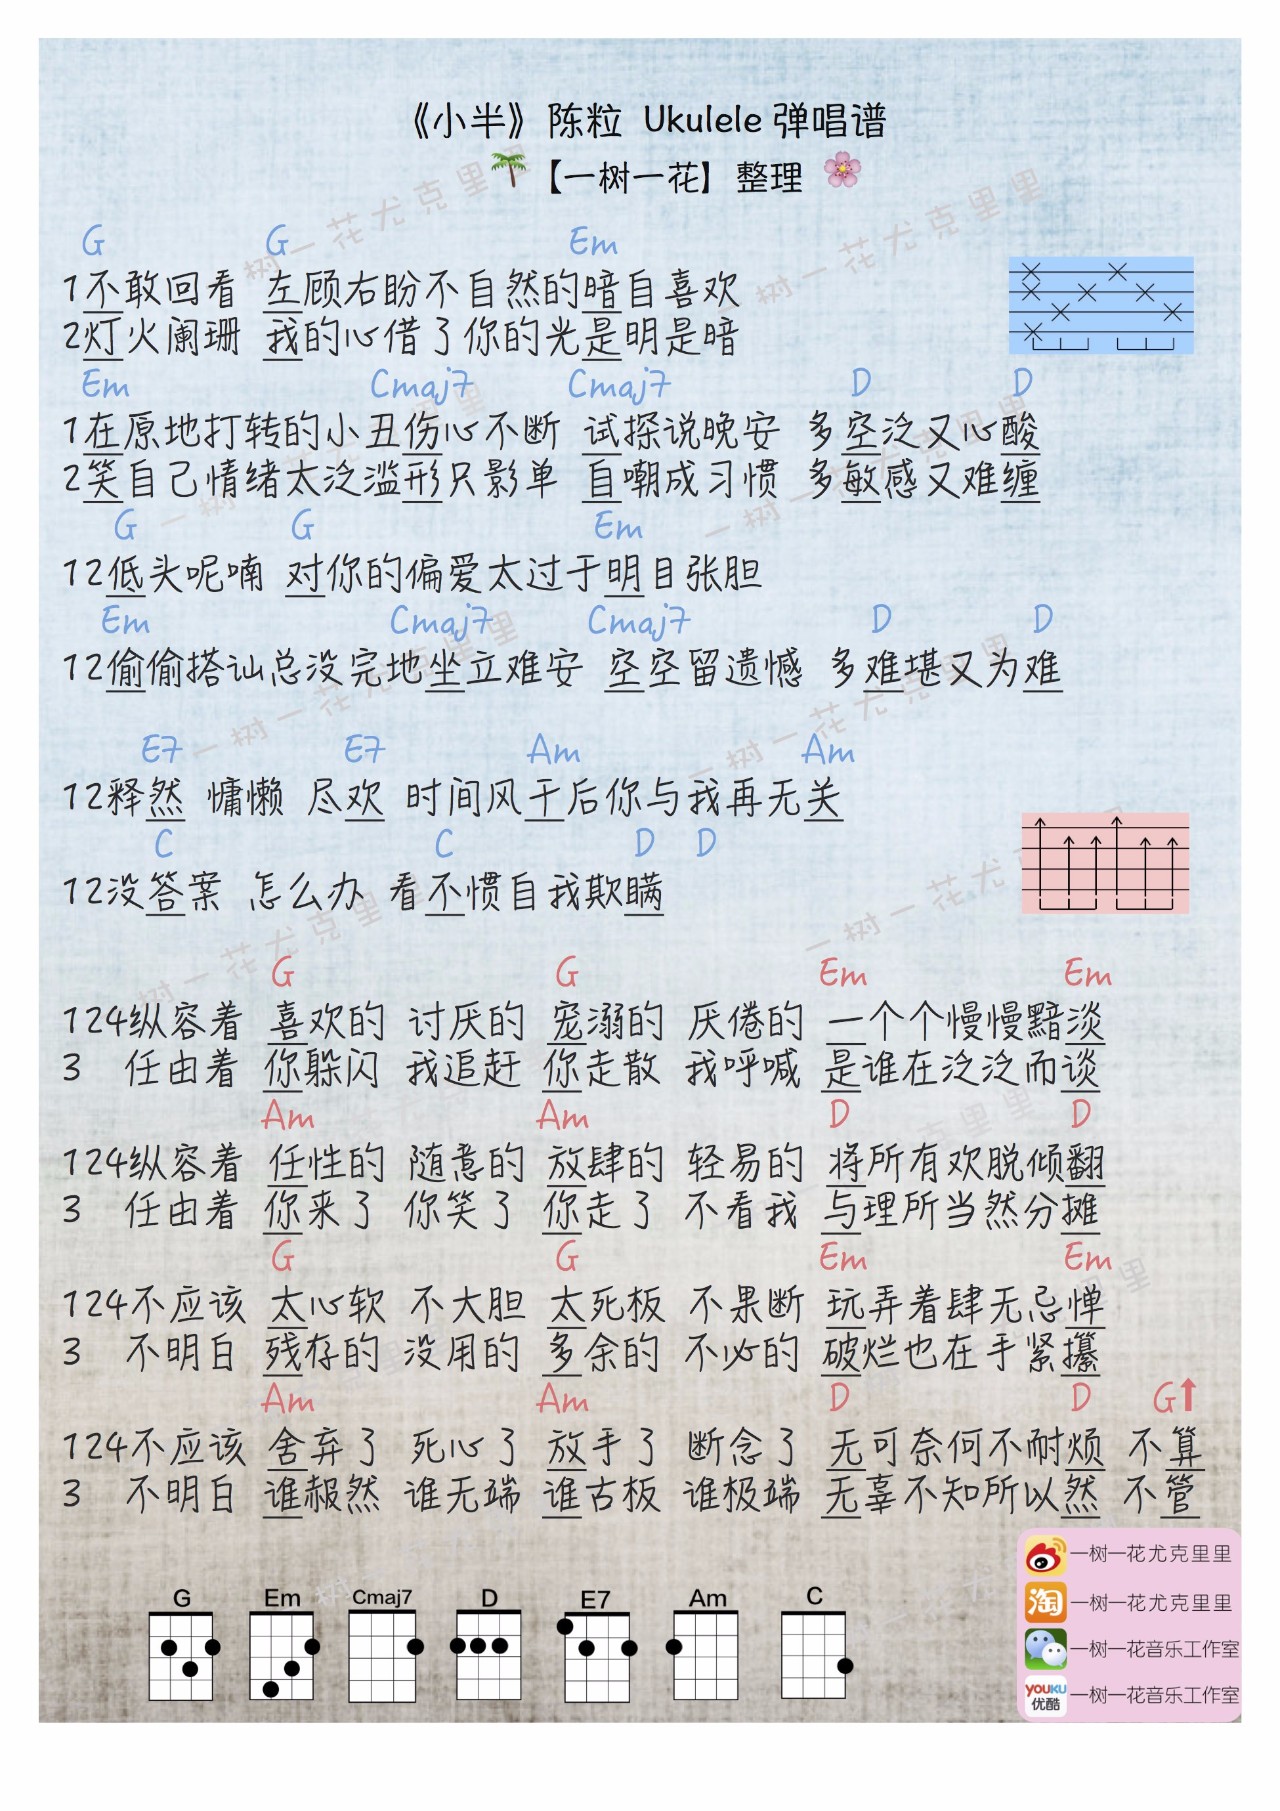 《小半》陈粒 Ukulele 弹唱谱
【一树一花】整理
G G Em
1不敢回看 左顾右盼不自然的暗自喜欢
2灯火阑珊 我的心借了你的光是明是暗
Em Cmaj7 Cmaj7 D D
1在原地打转的小丑伤心不断 试探说晚安 多空泛又心酸
2笑自己情绪太泛滥形只影单 自嘲成习惯 多敏感又难缠
G G Em
12低头呢喃 对你的偏爱太过于明目张胆
Em Cmaj7 Cmaj7 D D
12偷偷搭讪总没完地坐立难安 空空留遗憾 多难堪又为难
E7 E7 Am Am
12释然 慵懒 尽欢 时间风干后你与我再无关
C C D D
12没答案 怎么办 看不惯自我欺瞒
G G Em Em
124纵容着 喜欢的 讨厌的 宠溺的 厌倦的 一个个慢慢黯淡
3 任由着 你躲闪 我追赶 你走散 我呼喊 是谁在泛泛而谈
Am Am D D
124纵容着 任性的 随意的 放肆的 轻易的 将所有欢脱倾翻
3 任由着 你来了 你笑了 你走了 不看我 与理所当然分摊
G G Em Em
124不应该 太心软 不大胆 太死板 不果断 玩弄着肆无忌惮
3 不明白 残存的 没用的 多余的 不必的 破烂也在手紧攥
Am Am D D G
124不应该 舍弃了 死心了 放手了 断念了 无可奈何不耐烦 不算
3 不明白 谁赧然 谁无端 谁古板 谁极端 无辜不知所以然 不管
G Em Cmaj7 D E7 Am C
一树一花尤克里里
淘 一树一花尤克里里
一树一花音乐工作室
YOUKU 优酷 一树一花音乐工作室